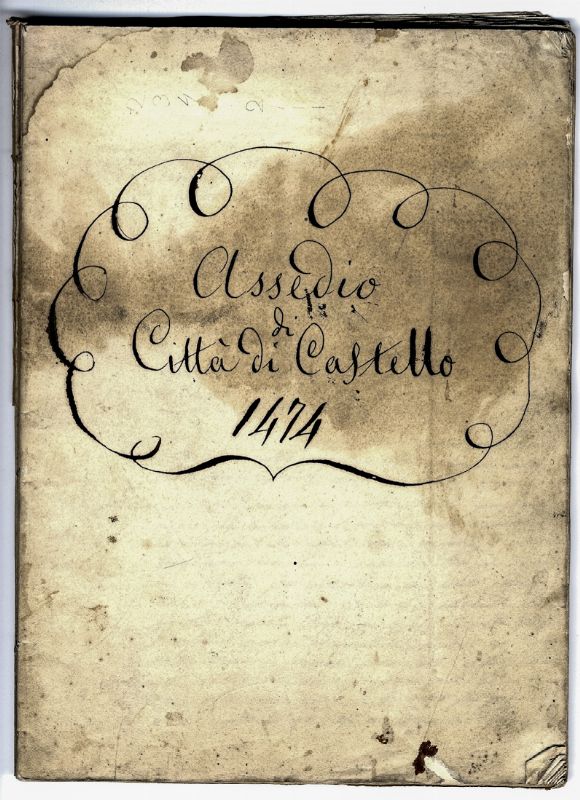 Assedio
di
Città di Castello
1474